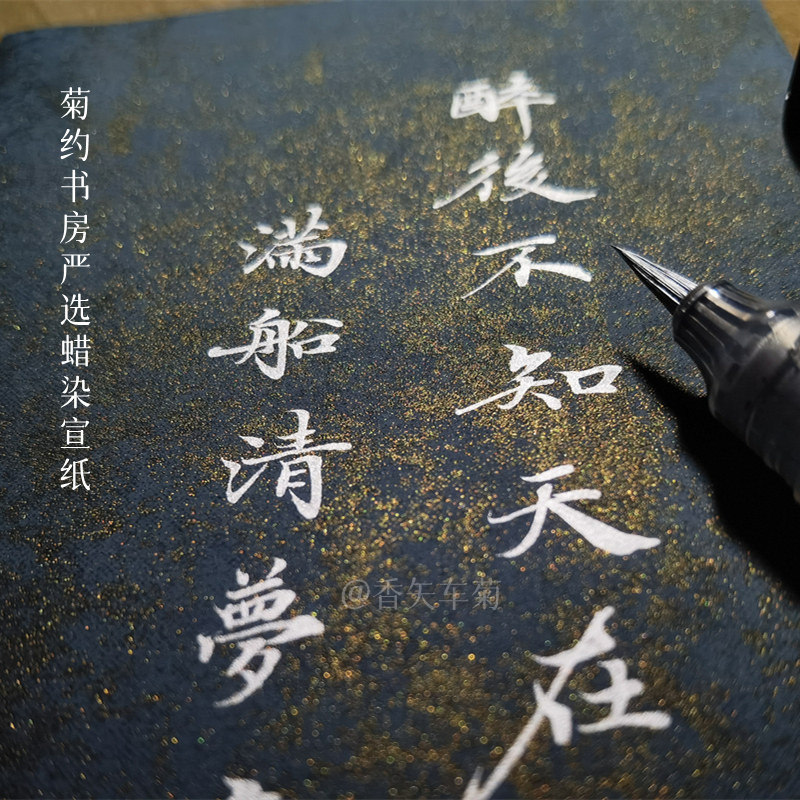 醉後不知天在
满船清夢
菊约书房严选蜡染宣纸
@香矢车菊